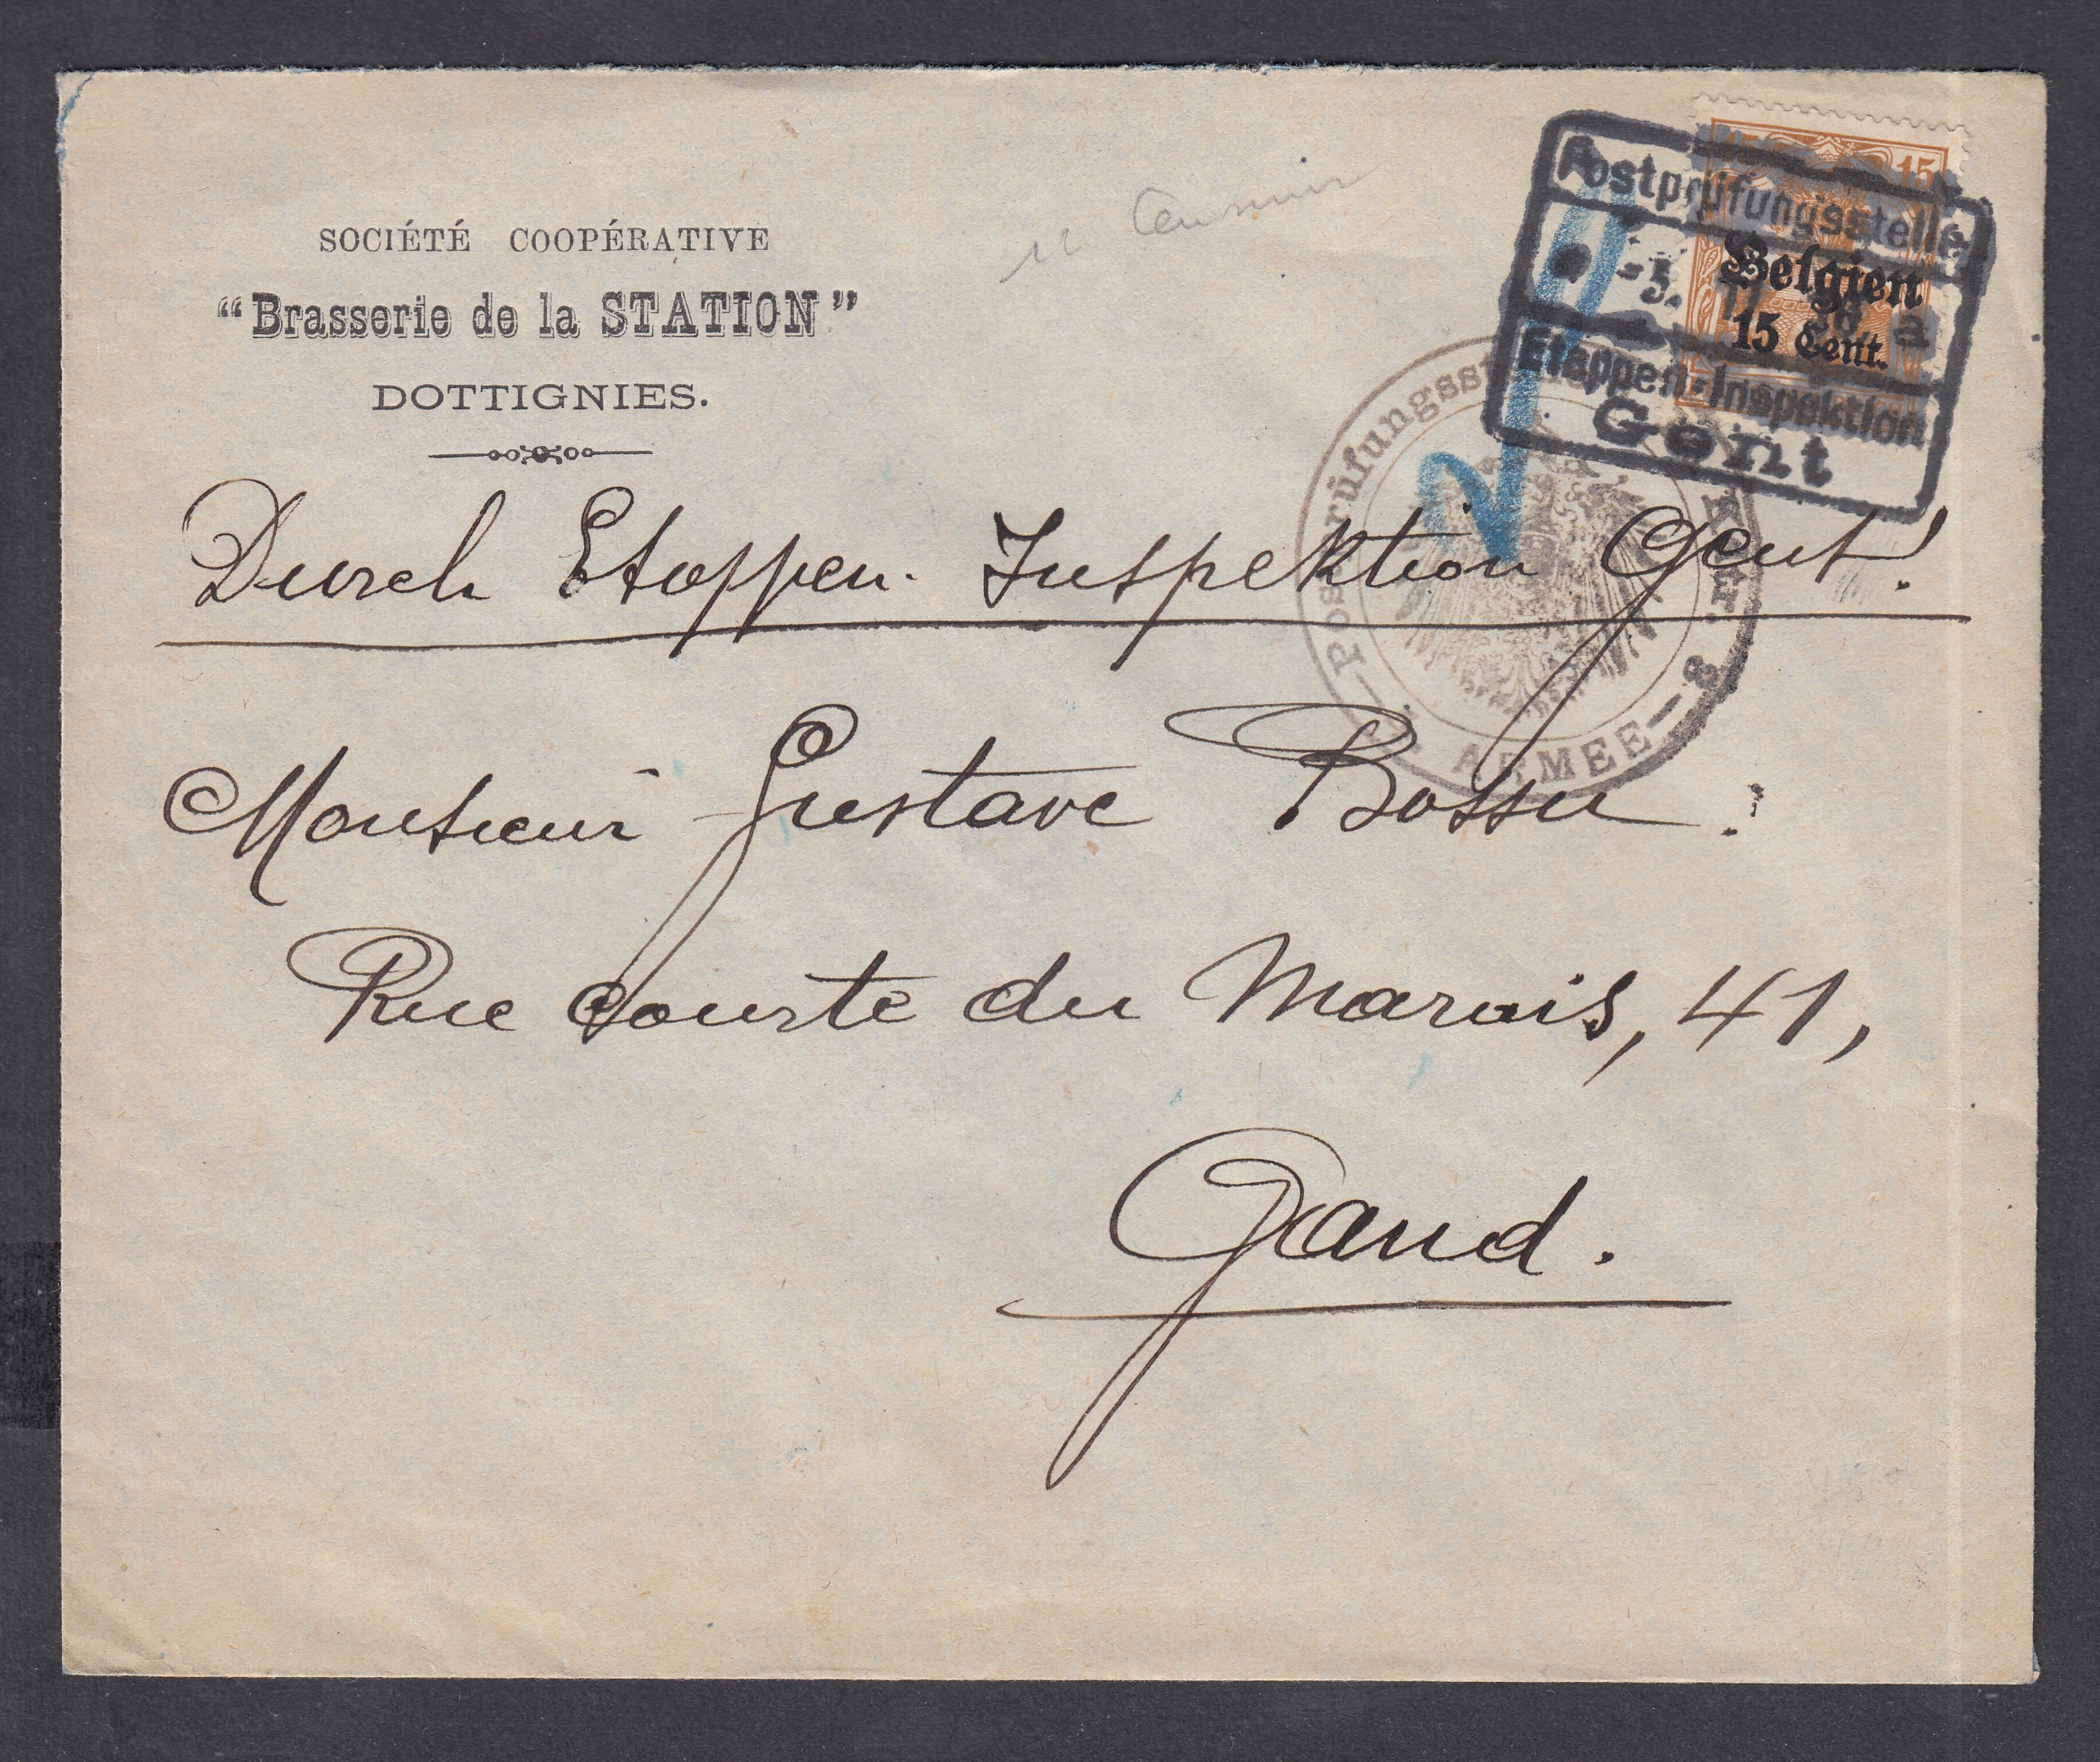 SOCIÉTÉ COOPÉRATIVE
"Brasserie de la STATION"
DOTTIGNIES.
15
Postprüfungsstelle
-5.
a
Belgien
15 Cent.
Etappen-Inspektion
Gent
Postprüfungsst
ARMEE
Durch Etappen-Inspektion Gent!
Monsieur Gustave Bossu.
Rue Courte du Marais, 41,
Gand.